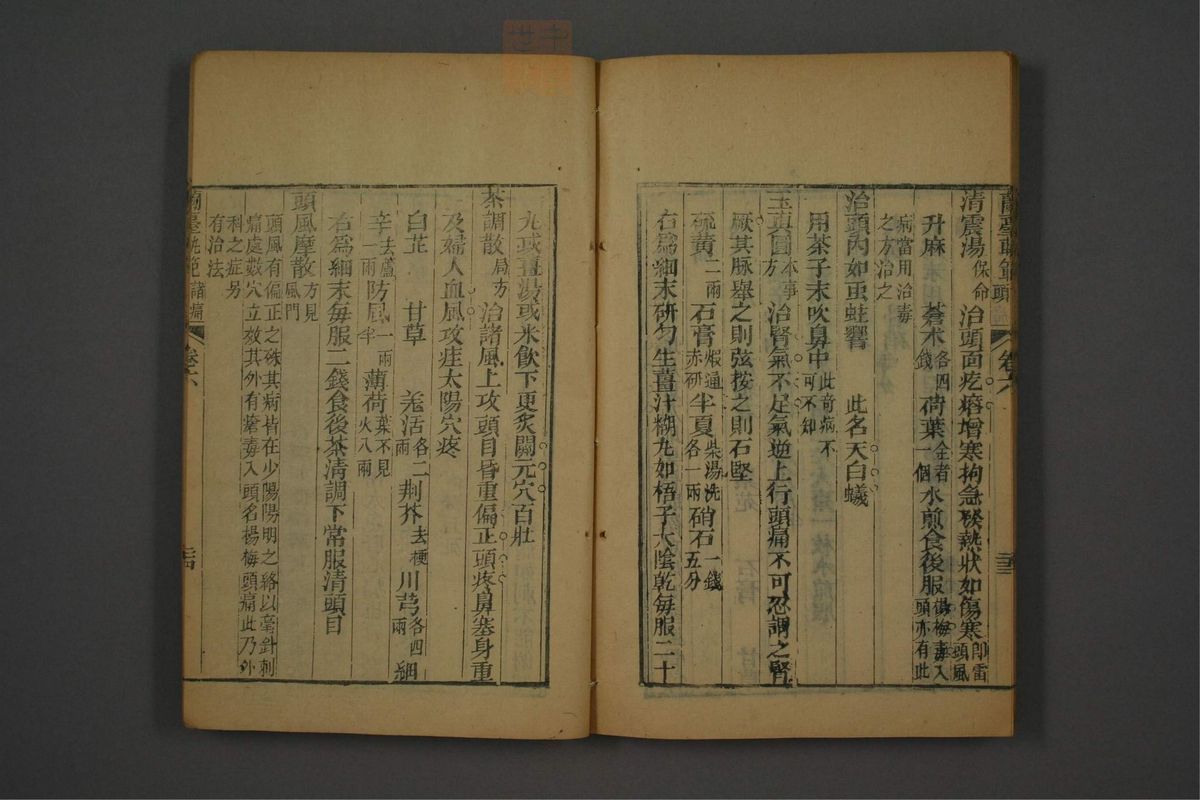 清震湯保命 治頭面疙瘩增寒拘急發熱狀如傷寒即雷頭風
升麻 蒼术各四錢 荷葉全者一個 水煎食後服楊梅毒入頭亦有此
病當用治毒之方治之
治頭內如虫蛀響 此名天白蟻
用茶子末吹鼻中此奇病不可不知
玉真圓本事方 治腎氣不足氣逆上行頭痛不可忍謂之腎
厥其脉舉之則弦按之則石堅
硫黃二兩 石膏煆通赤研 半夏柴湯洗各一兩 硝石一錢五分
右為細末研勻生薑汁糊丸如梧子大陰乾每服二十
卷六
丸或薑湯或米飲下更炙關元穴百壯
茶調散局方 治諸風上攻頭目昏重偏正頭疼鼻塞身重
及婦人血風攻疰太陽穴疼
白芷 甘草 羌活各二兩 荆芥去梗 川芎各四兩 細
辛去蘆一兩 防風一兩半 薄荷葉不見火八兩
右為細末每服二錢食後茶清調下常服清頭目
頭風摩散方見風門
頭風有偏正之殊其病皆在少陽陽明之絡以毫針刺
痛處數穴立效其外有瘡毒入頭名楊梅頭痛此乃外
科之症另有治法
諸痛
卷六